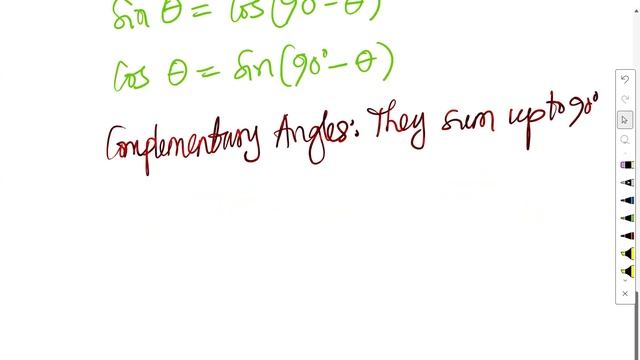 sin θ = cos(90° - θ)
cos θ = sin(90° - θ)
Complementary Angles: They sum up to 90°